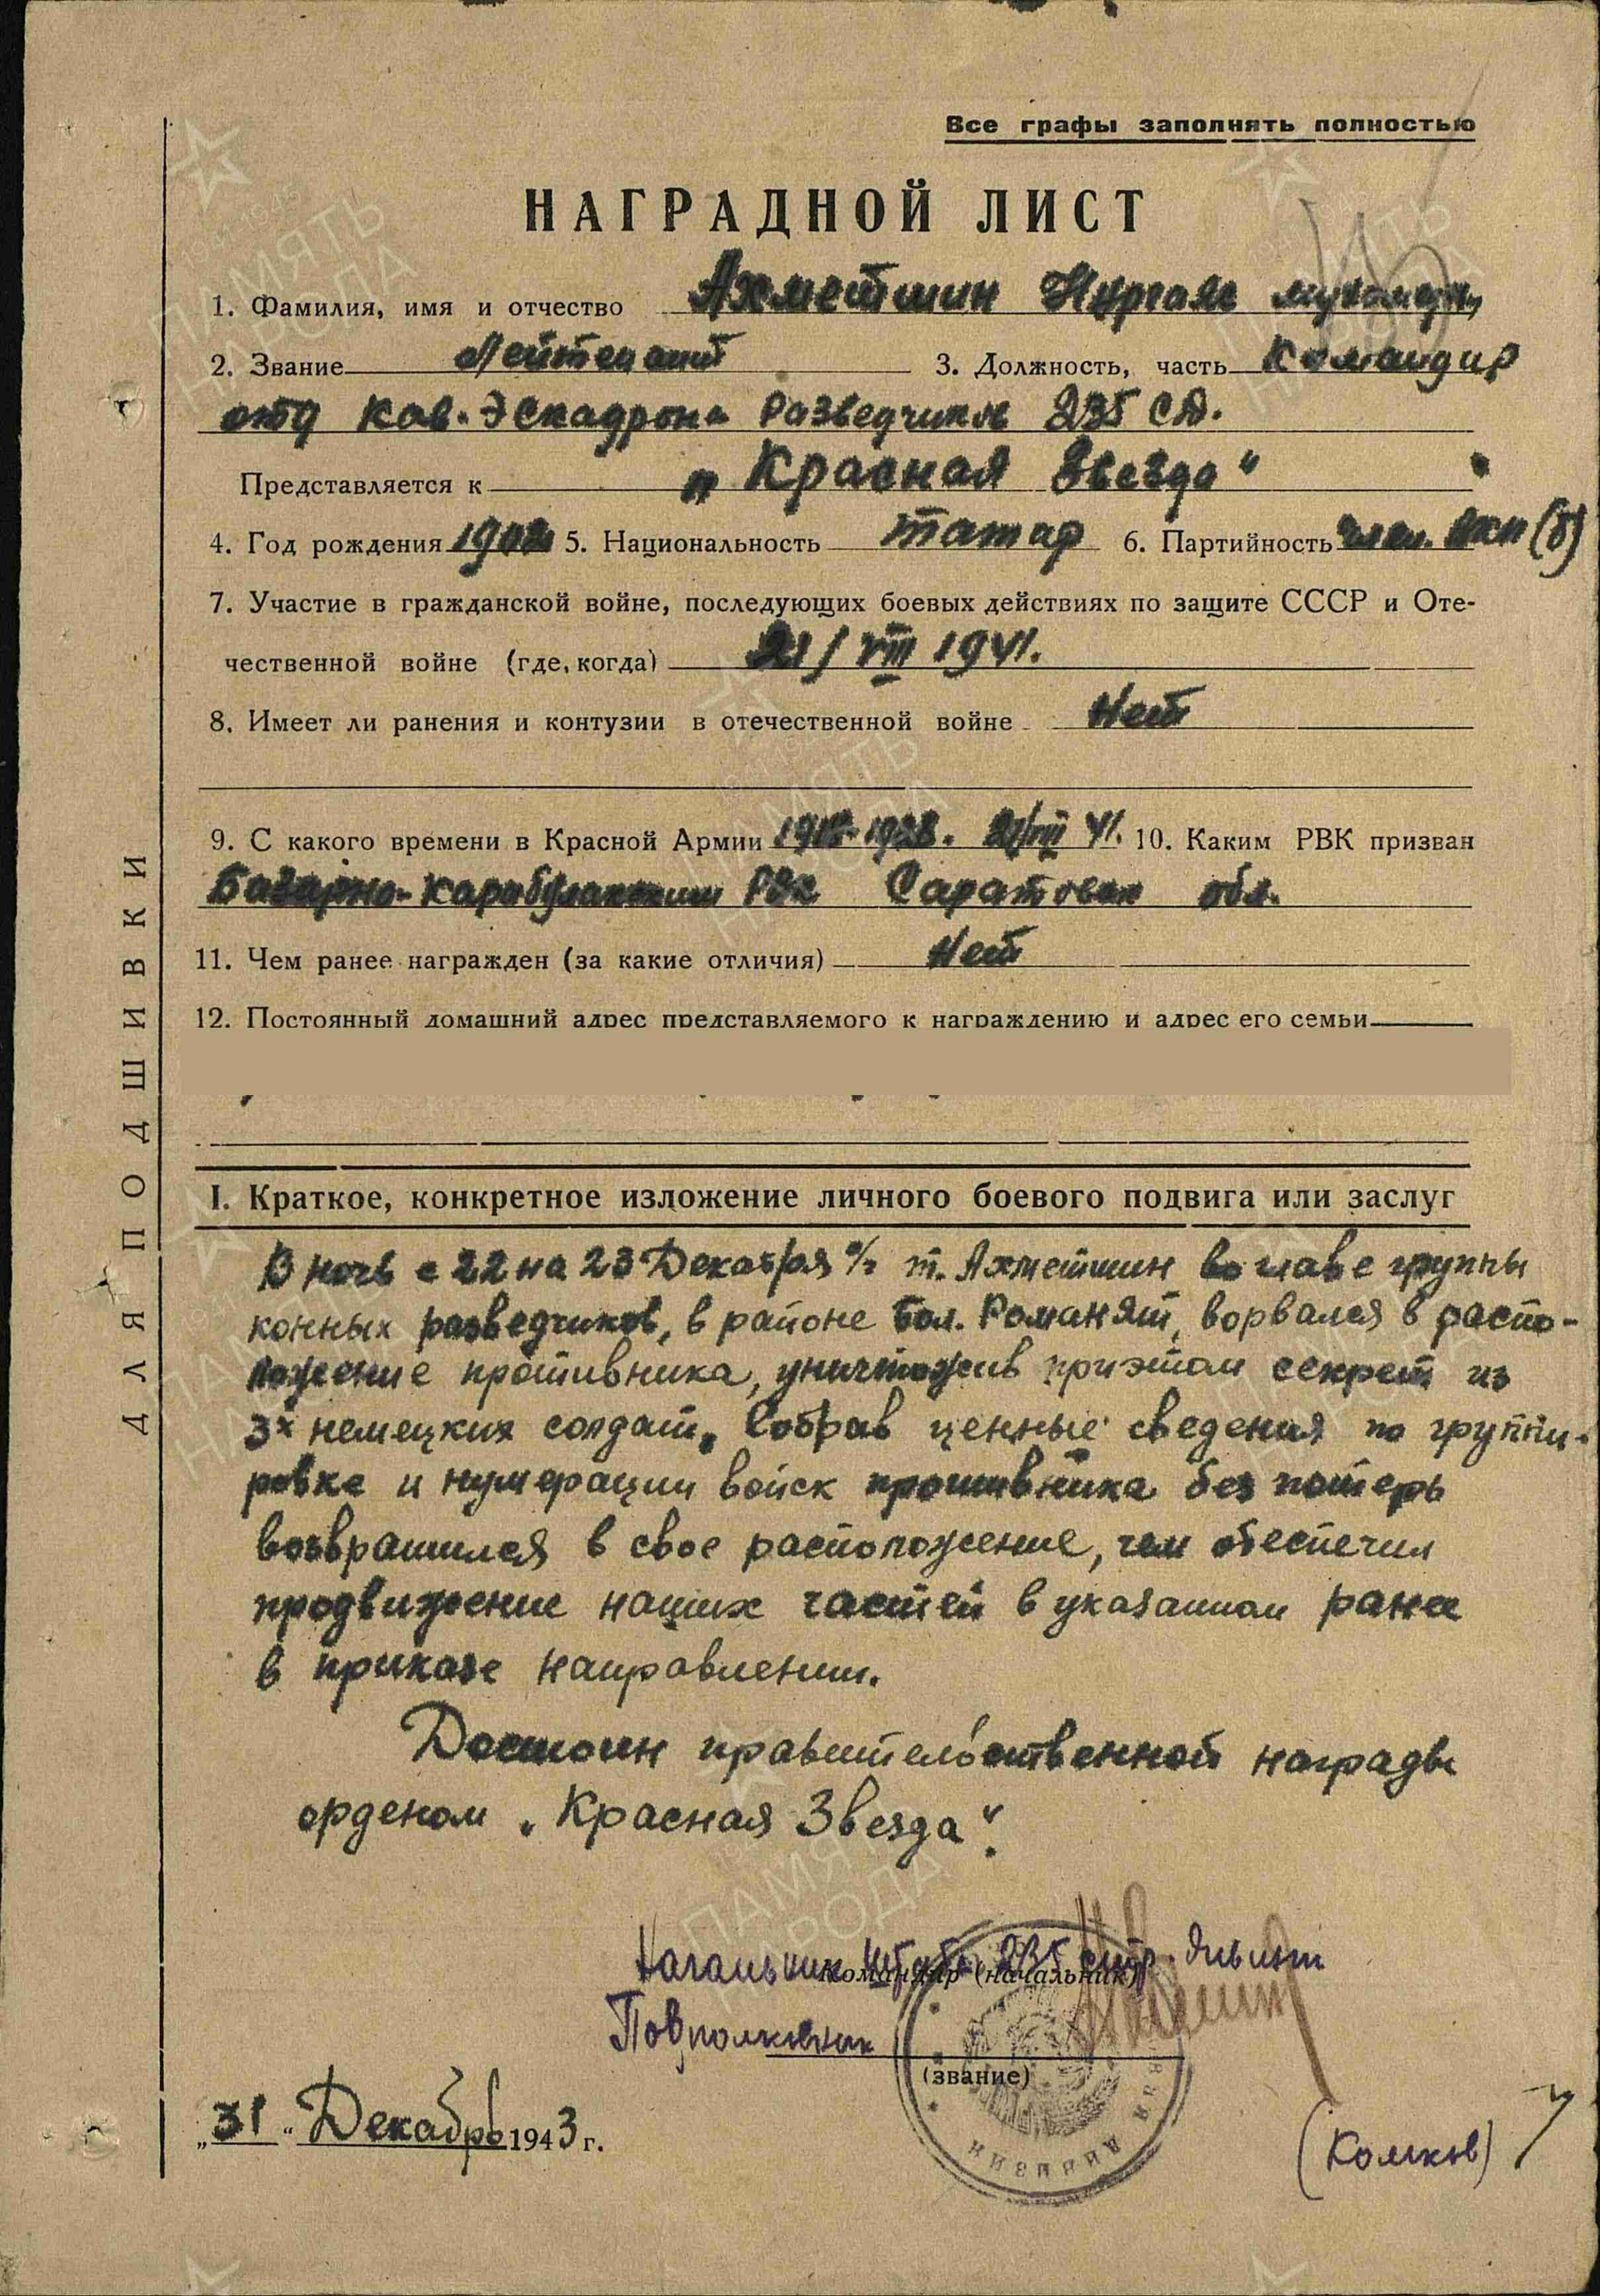 Все графы заполнять полностью
НАГРАДНОЙ ЛИСТ
1. Фамилия, имя и отчество Ахметшин Нургаяс
2. Звание Лейтенант 3. Должность, часть Командир
отд кав. Эскадрона Разведчиков 235 СД.
Представляется к „Красная Звезда“
4. Год рождения 5. Национальность татар 6. Партийность член. ВКП(б)
7. Участие в гражданской войне, последующих боевых действиях по защите СССР и Оте-
чественной войне (где, когда) 21/VIII 1941.
8. Имеет ли ранения и контузии в отечественной войне Нет
9. С какого времени в Красной Армии 21/VIII 41. 10. Каким РВК призван
Базарно-Карабулакским РВК Саратовск обл.
11. Чем ранее награжден (за какие отличия) Нет
12. Постоянный домашний адрес представляемого к награждению и адрес его семьи
I. Краткое, конкретное изложение личного боевого подвига или заслуг
В ночь с 22 на 23 Декабря с/г т. Ахметшин во главе группы
конных разведчиков, в районе Бол. Романят, ворвался в распо-
ложение противника, уничтожив приэтом секрет из
3х немецких солдат. Собрав ценные сведения по группи-
ровке и нумерации войск противника без потерь
возвратился в свое расположение, чем обеспечил
продвижение наших частей в указанном ранее
в приказе направлении.
Достоин правительственной награды
орденом „Красная Звезда“.
Начальник Штаба 235 стр. дивизии
Командир (начальник)
Подполковник
(звание)
„31“ Декабрь 1943 г.
(Комков)
ДЛЯ ПОДШИВКИ
ПАМЯТЬ НАРОДА